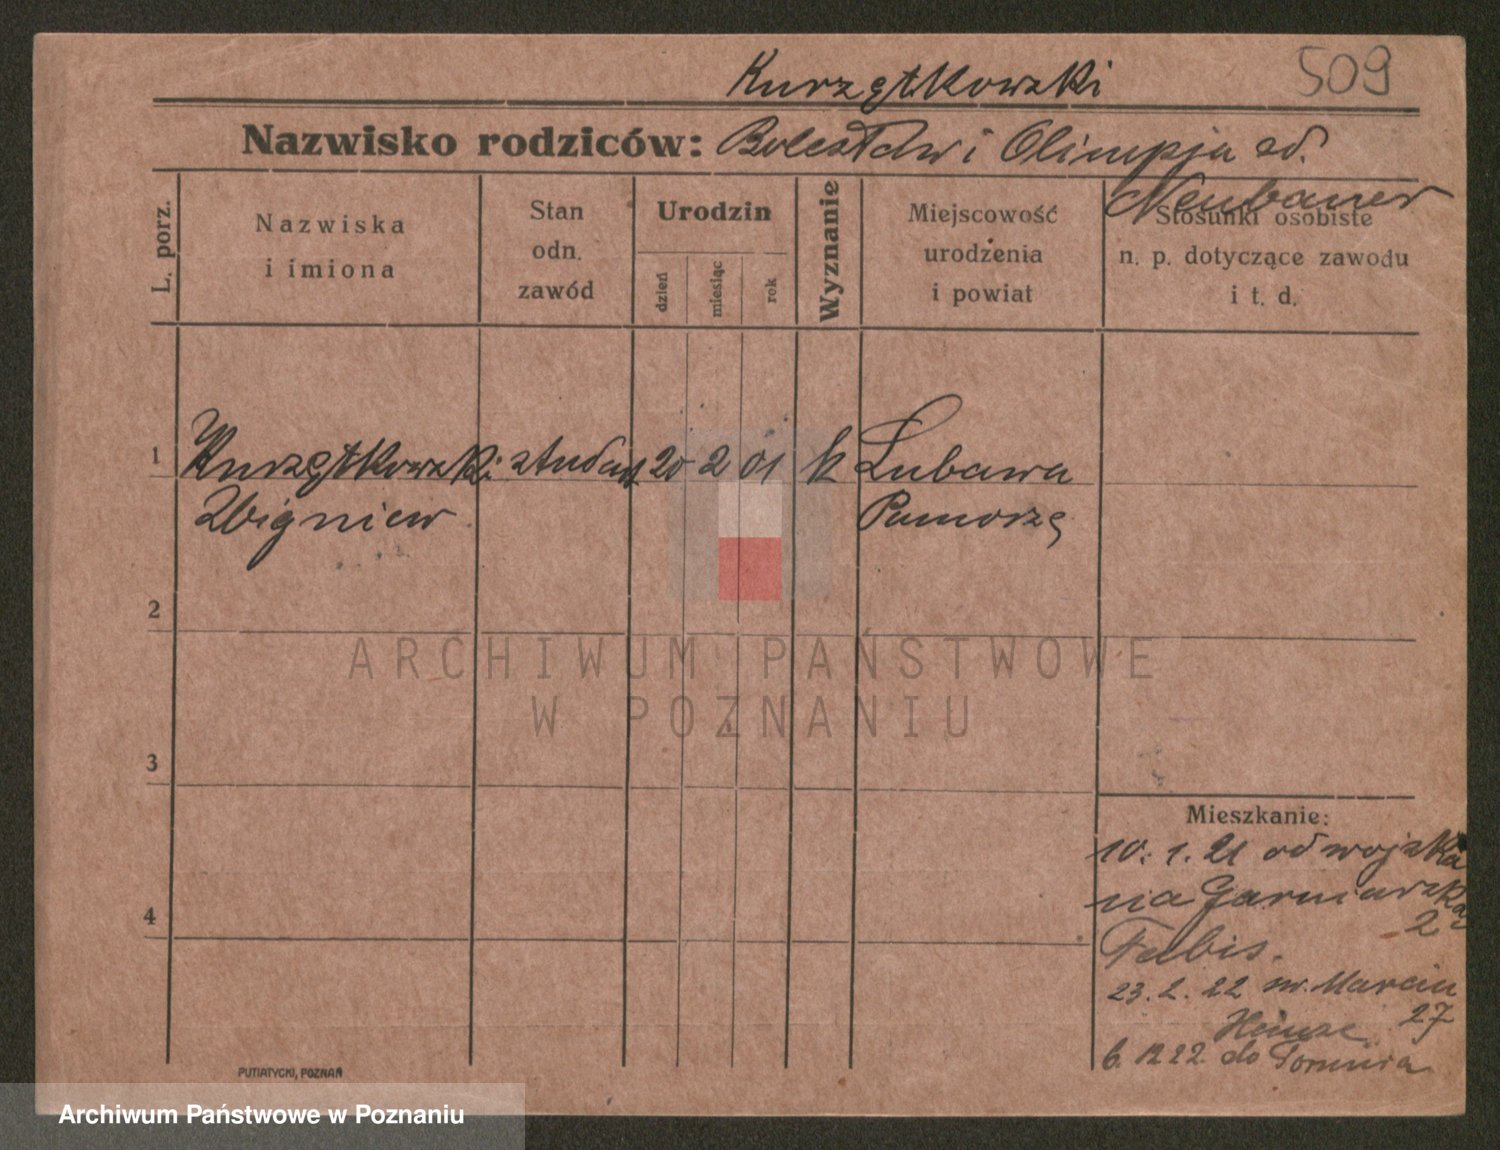 509
Kurzętkowski
Nazwisko rodziców: Bolesław i Olimpja od.
Neubauer
L. porz.
Nazwiska
i imiona
Stan
odn.
zawód
Urodzin
dzień
miesiąc
rok
Wyznanie
Miejscowość
urodzenia
i powiat
Stosunki osobiste
n. p. dotyczące zawodu
i t. d.
1 Kurzętkowski student 20 2 01 k Lubawa
Zbigniew Pomorze
2
3
4
Mieszkanie:
10. 1. 21 od wojska
na Garniarska
2
Fabis.
23. 2. 22 św. Marcin
27
Heinze
6. 12 22. do Torunia
PUTIATYCKI, POZNAŃ
ARCHIWUM PAŃSTWOWE
W POZNANIU
Archiwum Państwowe w Poznaniu